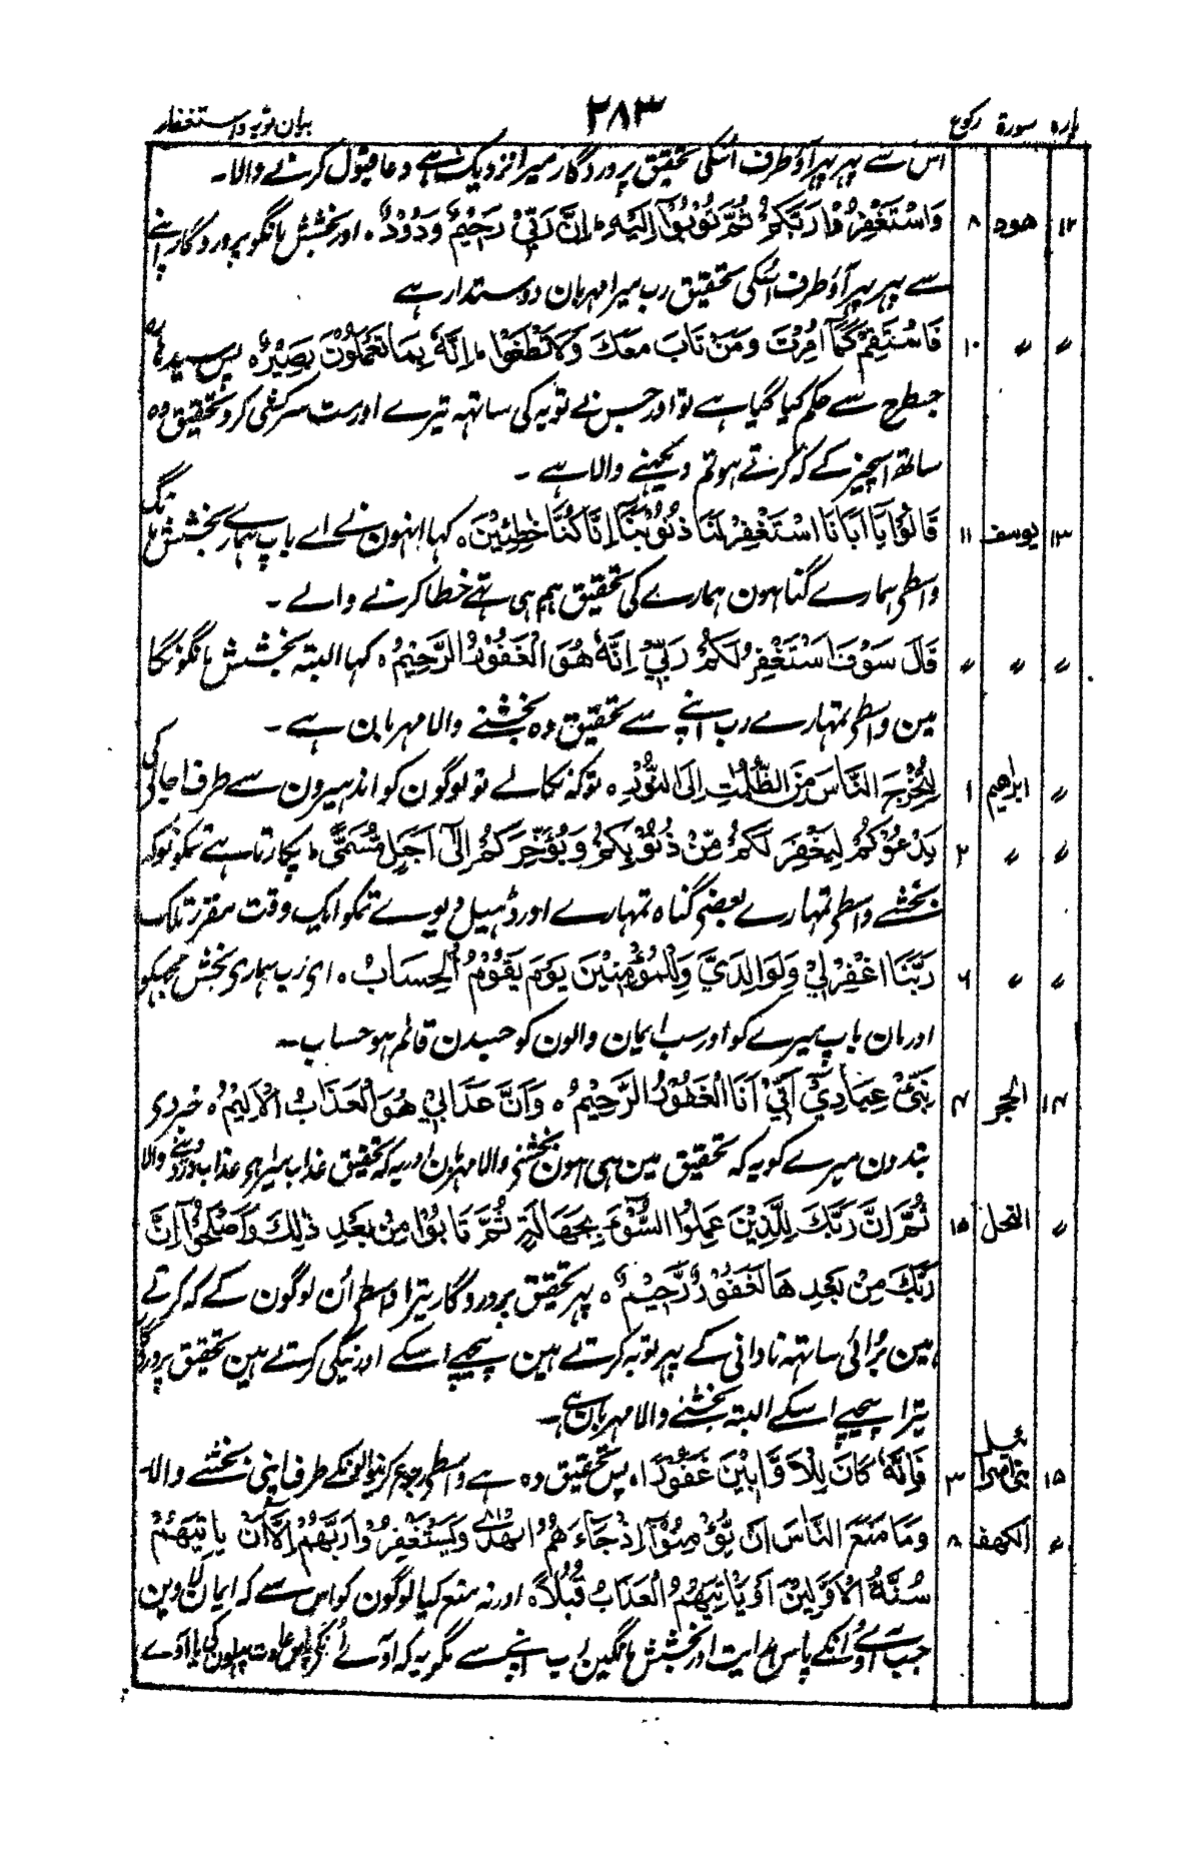 پارہ سورۃ رکوع ۲۸۳ بیان توبہ و استغفار
اس سے پہر پہر آؤ طرف اسکی تحقیق پروردگار میرا نزدیک ہے دعا قبول کرنے والا۔
۱۲ ھود ۸ وَاسْتَغْفِرُوْا رَبَّكُمْ ثُمَّ تُوْبُوْٓا اِلَيْهِ ؕ اِنَّ رَبِّيْ رَحِيْمٌ وَّدُوْدٌ ہ اور بخشش مانگو پروردگار اپنے
سے پہر پہر آؤ طرف اسکی تحقیق رب میرا مہربان دوستدار ہے
〃 〃 ۱۰ فَاسْتَقِمْ كَمَآ اُمِرْتَ وَمَنْ تَابَ مَعَكَ وَلَا تَطْغَوْا ؕ اِنَّهٗ بِمَا تَعْمَلُوْنَ بَصِيْرٌ ہ پس سیدہا رہ
جسطرح سے حکم کیا گیا ہے تو اور جس نے توبہ کی ساتہہ تیرے اور مت سرکشی کرو تحقیق وہ
ساتھ اسچیز کے کہ کرتے ہو تم دیکہنے والا ہے ۔
۱۳ یوسف ۱۱ قَالُوْا يٰٓاَبَانَا اسْتَغْفِرْ لَنَا ذُنُوْبَنَآ اِنَّا كُنَّا خٰطِئِيْنَ ہ کہا انہون نے اے باپ ہمارے بخشش مانگ
واسطے ہمارے گناہون ہمارے کی تحقیق ہم ہی تہے خطا کرنے والے ۔
〃 〃 〃 قَالَ سَوْفَ اَسْتَغْفِرُ لَكُمْ رَبِّيْ اِنَّهٗ هُوَ الْغَفُوْرُ الرَّحِيْمُ ہ کہا البتہ بخشش مانگونگا
مین واسطے تمہارے رب اپنے سے تحقیق وہ بخشنے والا مہربان ہے ۔
〃 ابراھیم ۱ لِتُخْرِجَ النَّاسَ مِنَ الظُّلُمٰتِ اِلَى النُّوْرِ ہ توکہ نکالے تو لوگون کو اندہیرون سے طرف اجالے کی
〃 〃 ۲ يَدْعُوْكُمْ لِيَغْفِرَ لَكُمْ مِّنْ ذُنُوْبِكُمْ وَيُؤَخِّرَكُمْ اِلٰٓى اَجَلٍ مُّسَمًّى ؕ پکارتا ہے تمکو توکہ
بخشے واسطے تمہارے بعضے گناہ تمہارے اور ڈہیل دیوے تمکو ایک وقت مقرر تلک
〃 〃 ۶ رَبَّنَا اغْفِرْ لِيْ وَلِوَالِدَيَّ وَلِلْمُؤْمِنِيْنَ يَوْمَ يَقُوْمُ الْحِسَابُ ہ ای رب ہماری بخشش مجہکو
اور مان باپ میرے کو اور سب ایمان والون کو جسدن قائم ہو حساب ۔
۱۴ الحجر ۴ نَبِّئْ عِبَادِيْٓ اَنِّيْٓ اَنَا الْغَفُوْرُ الرَّحِيْمُ ہ وَاَنَّ عَذَابِيْ هُوَ الْعَذَابُ الْاَلِيْمُ ہ خبر دی
بندون میرے کو یہ کہ تحقیق مین ہی ہون بخشنے والا مہربان اور یہ کہ تحقیق عذاب میرا وہ عذاب درد دینے والا
〃 النحل ۱۵ ثُمَّ اِنَّ رَبَّكَ لِلَّذِيْنَ عَمِلُوا السُّوْٓءَ بِجَهَالَةٍ ثُمَّ تَابُوْا مِنْۢ بَعْدِ ذٰلِكَ وَاَصْلَحُوْٓا اِنَّ
رَبَّكَ مِنْۢ بَعْدِهَا لَغَفُوْرٌ رَّحِيْمٌ ہ پہر تحقیق پروردگار تیرا واسطے اُن لوگون کے کہ کرتے
ہین بُرائی ساتہہ نادانی کے پہر توبہ کرتے ہین پیچہے اسکے اور نیکی کرتے ہین تحقیق پروردگار
تیرا پیچہے اسکے البتہ بخشنے والا مہربان ہے ۔
۱۵ بنی اسرائیل ۳ فَاِنَّهٗ كَانَ لِلْاَوَّابِيْنَ غَفُوْرًا ہ پس تحقیق وہ ہے واسطے رجوع کرنیوالونکے طرف اپنی بخشنے والا۔
〃 الکہف ۸ وَمَا مَنَعَ النَّاسَ اَنْ يُّؤْمِنُوْٓا اِذْ جَآءَهُمُ الْهُدٰى وَيَسْتَغْفِرُوْا رَبَّهُمْ اِلَّآ اَنْ يَاْتِيَهُمْ
سُنَّةُ الْاَوَّلِيْنَ اَوْ يَاْتِيَهُمُ الْعَذَابُ قُبُلًا ہ اور نہ منع کیا لوگون کو اس سے کہ ایمان لاوین
جب آئے اُنکے پاس ہدایت اور بخشش مانگین رب اپنے سے مگر یہ کہ آوے اُنکے پاس عادت پہلون کی یا آوے